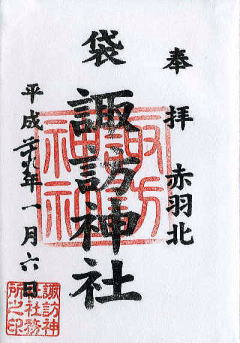 奉拝 赤羽北
袋
諏訪神社
平成廿九年一月六日
諏訪神社
諏訪神
社社務
所之印